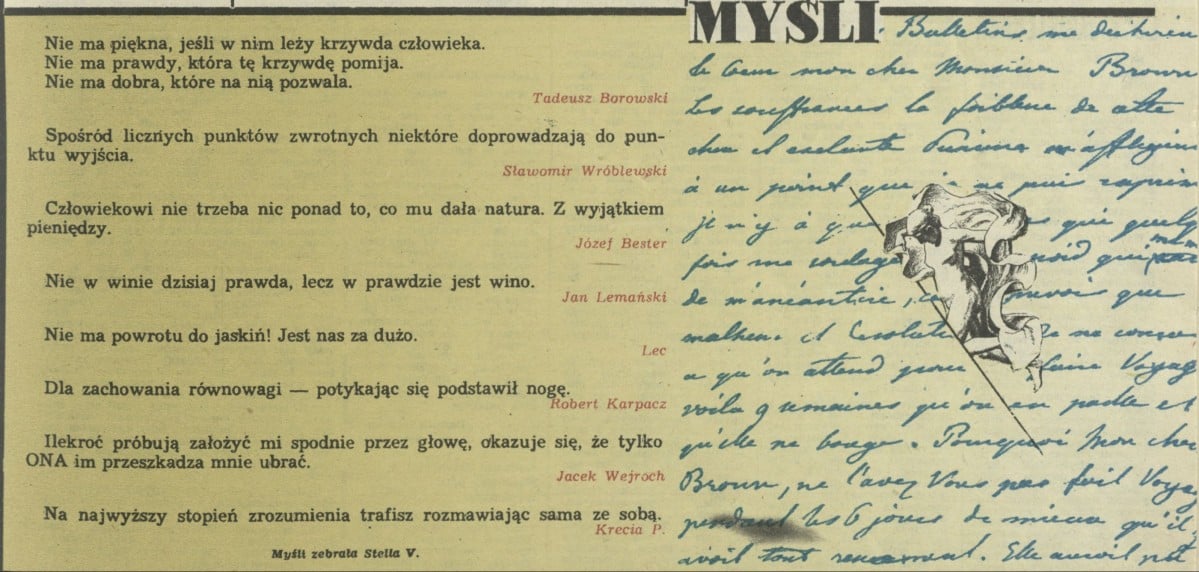 MYŚLI
Nie ma piękna, jeśli w nim leży krzywda człowieka.
Nie ma prawdy, która tę krzywdę pomija.
Nie ma dobra, które na nią pozwala.
Tadeusz Borowski
Spośród licznych punktów zwrotnych niektóre doprowadzają do pun-
ktu wyjścia.
Sławomir Wróblewski
Człowiekowi nie trzeba nic ponad to, co mu dała natura. Z wyjątkiem
pieniędzy.
Józef Bester
Nie w winie dzisiaj prawda, lecz w prawdzie jest wino.
Jan Lemański
Nie ma powrotu do jaskiń! Jest nas za dużo.
Lec
Dla zachowania równowagi — potykając się podstawił nogę.
Robert Karpacz
Ilekroć próbują założyć mi spodnie przez głowę, okazuje się, że tylko
ONA im przeszkadza mnie ubrać.
Jacek Wejroch
Na najwyższy stopień zrozumienia trafisz rozmawiając sama ze sobą.
Krecia P.
Myśli zebrała Stella V.
Bulletins me
mon cher Monsieur Brown
Les souffrances la faiblesse de cette
chere et
à un point que je ne puis
je n'y a
fois me
de
malheur et
a qu'on attend pour faire Voyag
voilà 9 semaines qu'on en parle et
qu'elle ne bouge. Pourquoi Mon cher
Brown, ne l'avez Vous pas fait Voya
pendant les 6 jours de mieux qu'il
avoit tout Elle auroit